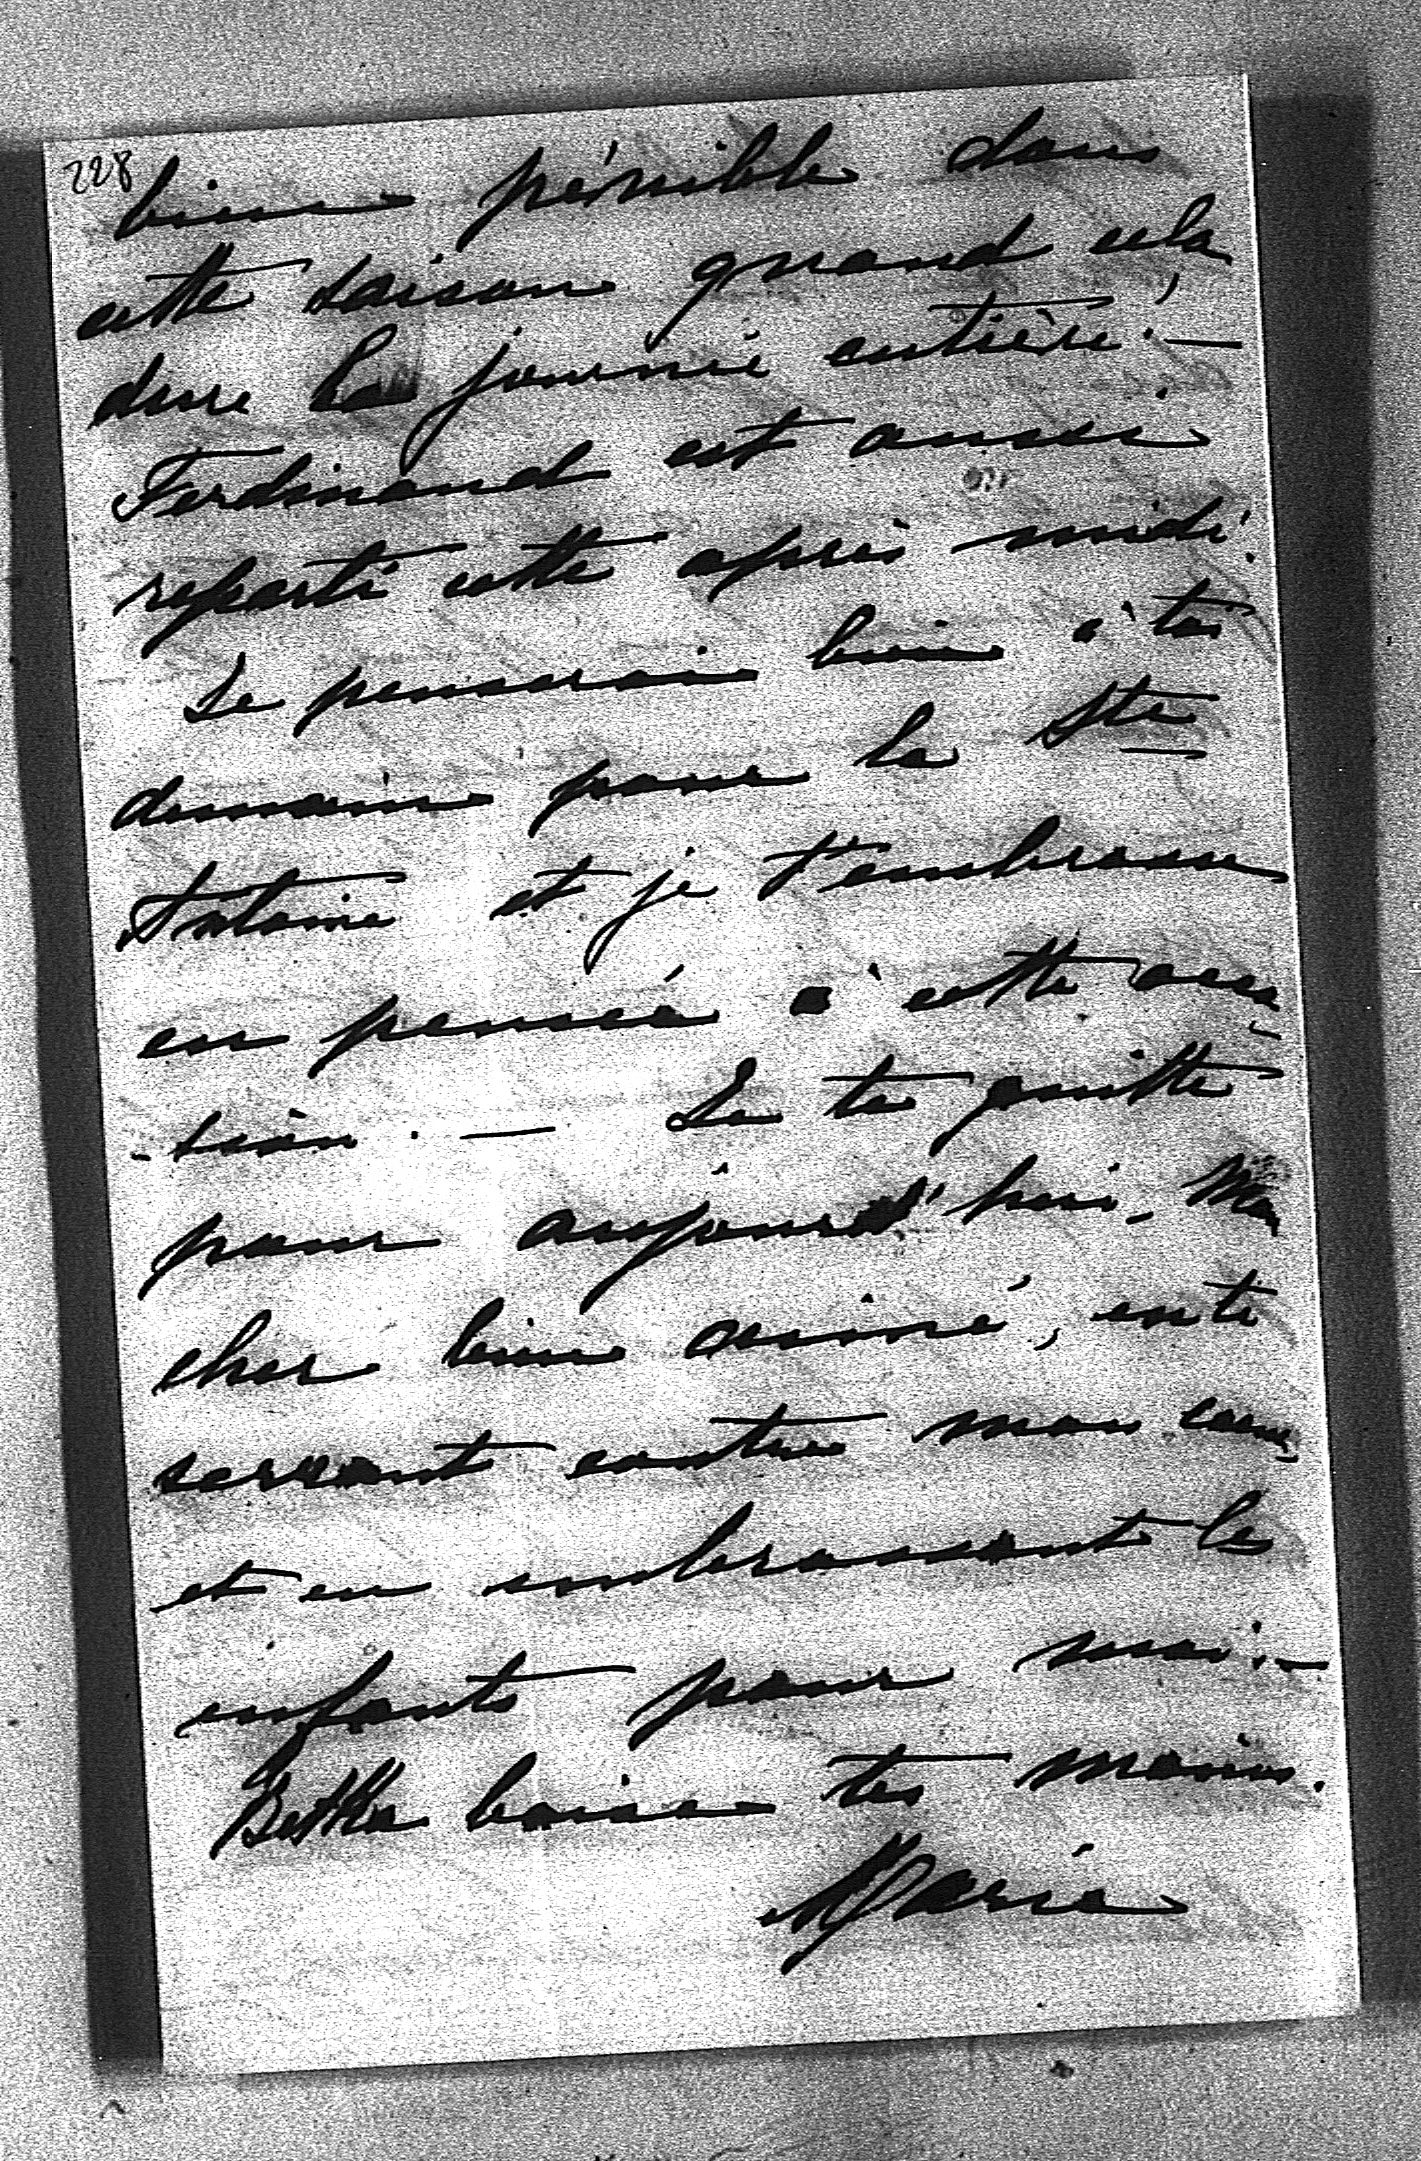 228
bien pénible dans
cette saison quand cela
dure la journée entière. —
Ferdinand est aussi
reparti cette après midi.
Je penserai bien à toi
demain pour la Ste
Antoine et je t'embrasse
en pensée à cette occa
-sion. — Je te quitte
pour aujourd'hui, Mon
cher bien aimé, en te
serrant contre mon coeur
et en embrassant les
enfants pour moi. —
Betka baise tes mains.
Marie